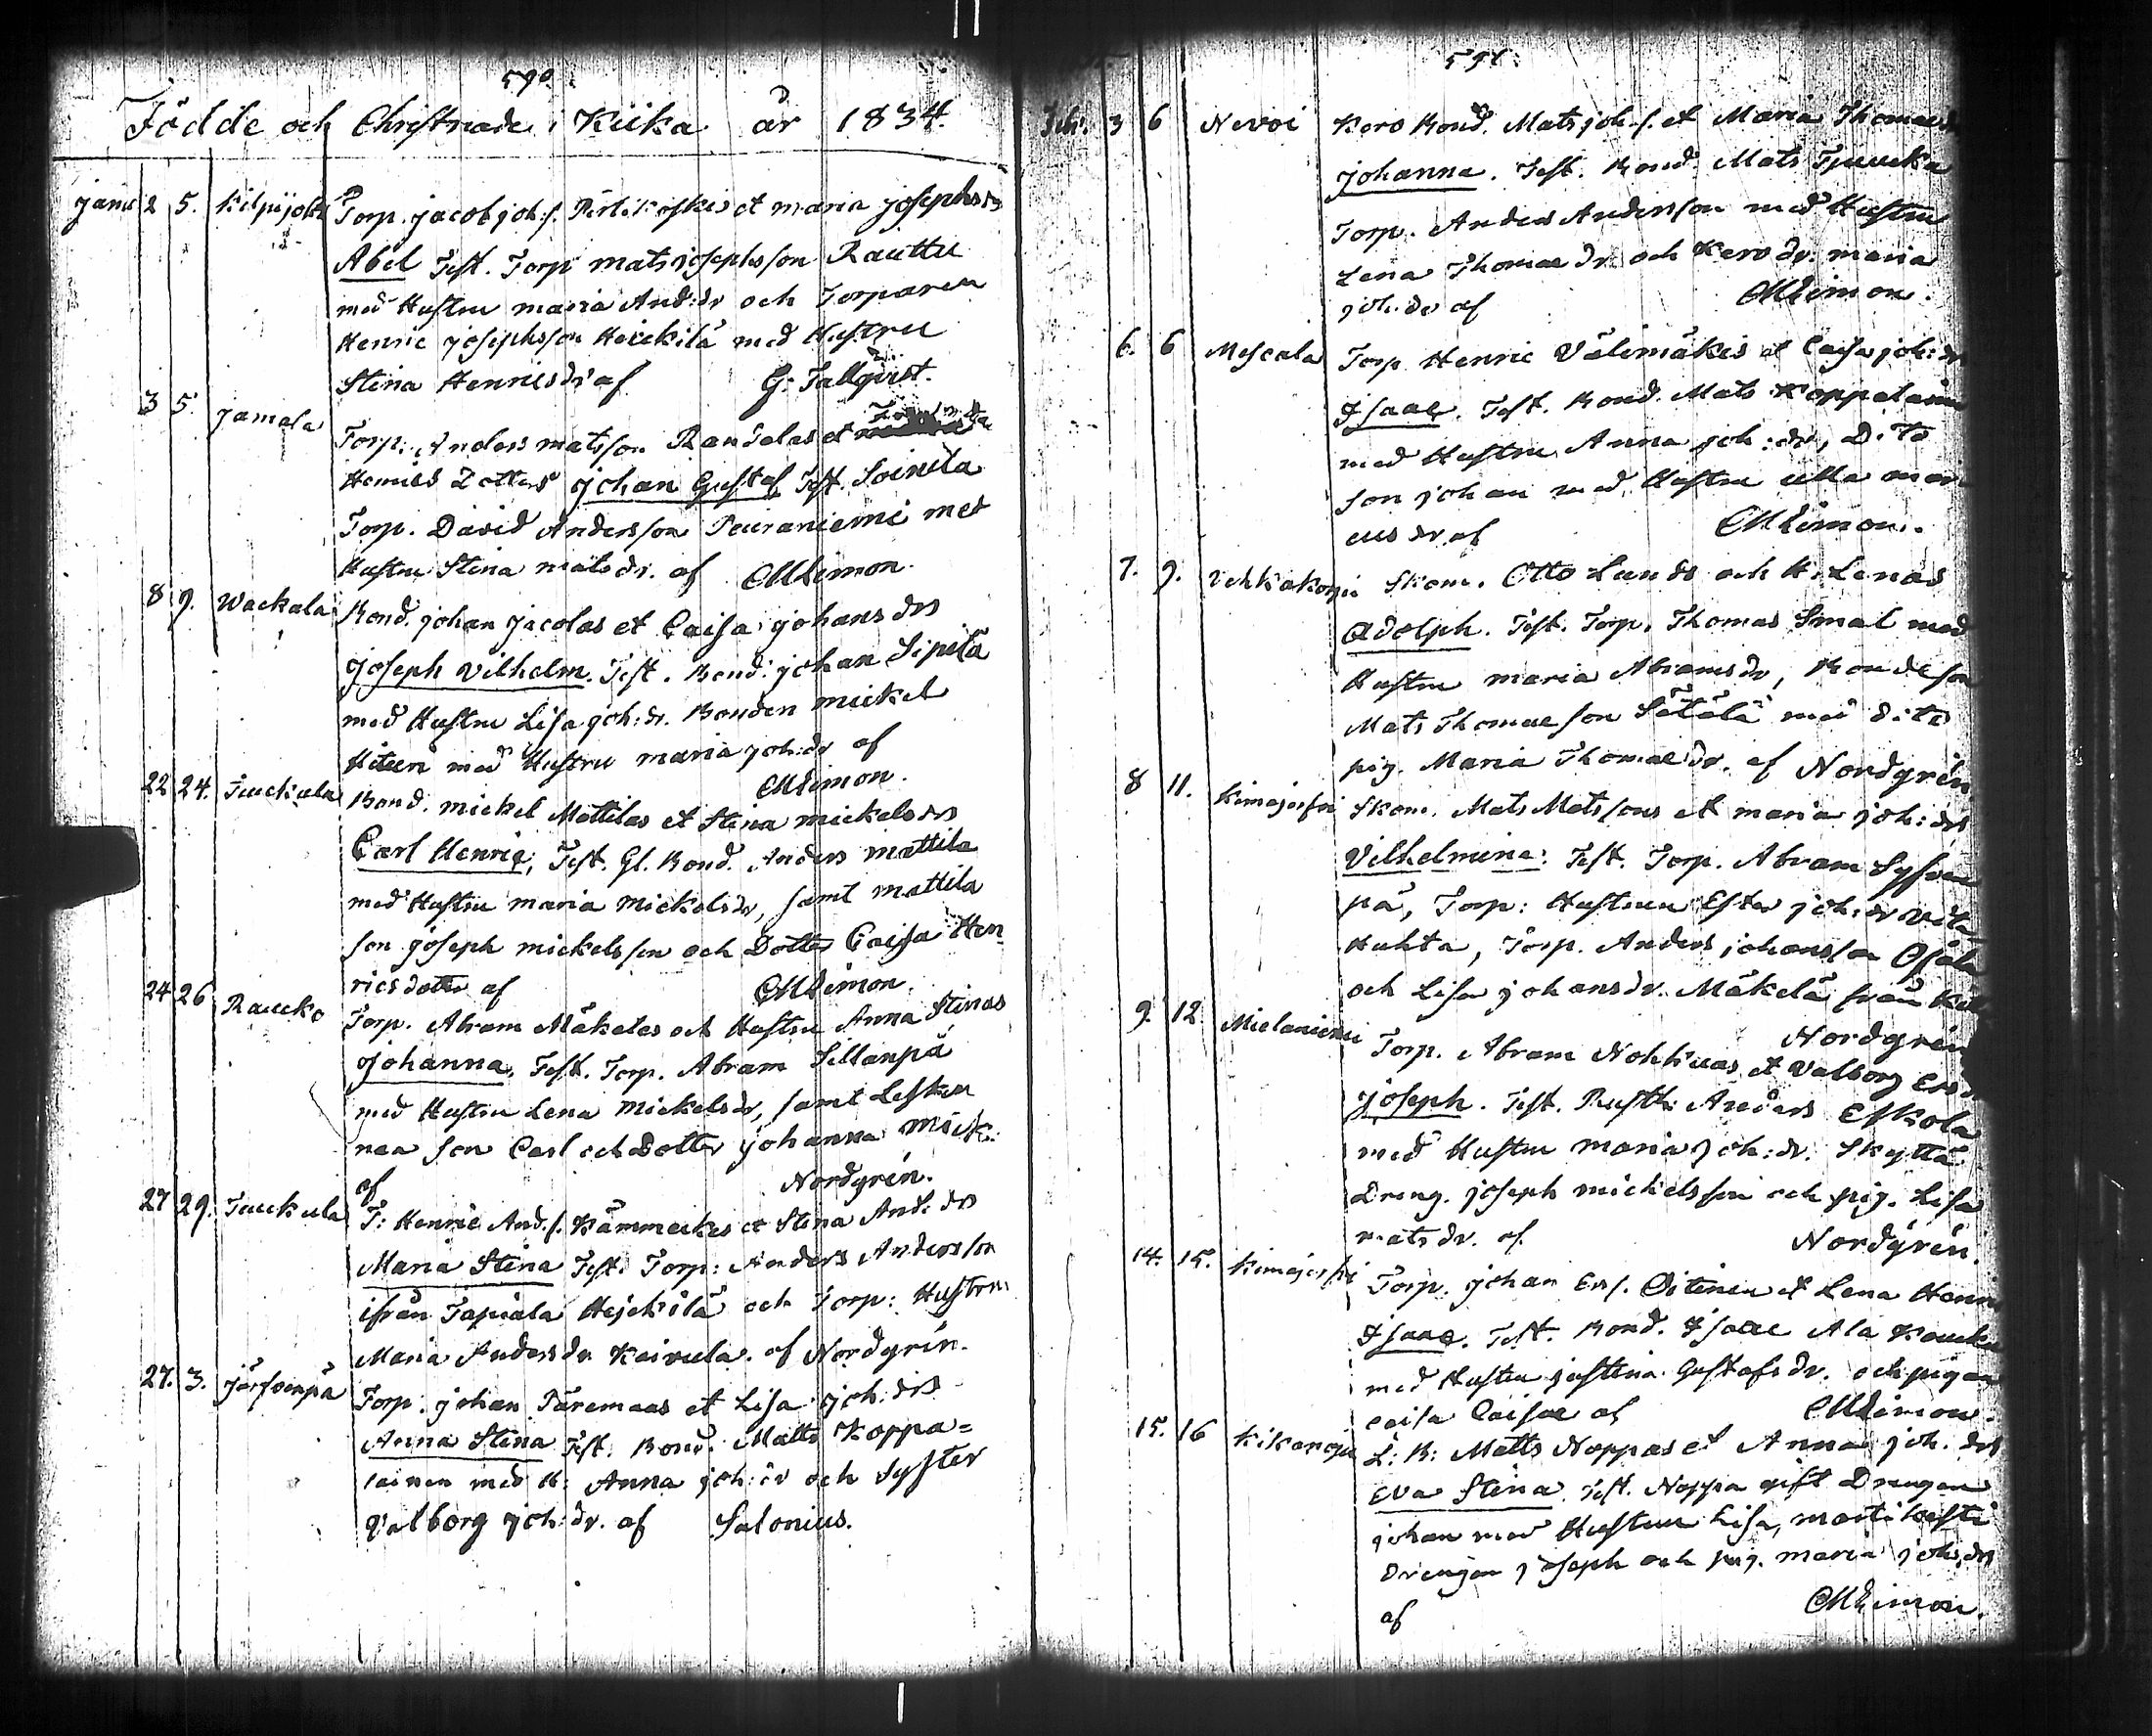 590.
Födde och Christnade i Kiika år 1834.
Janu 2 5. Kilpijoki Torp. Jacob Joh:s. Pertikoskis et Maria Josephsdrs
Abel Test. Torp Mats Josephsson Rauttu
med Hustru Maria And:dr och Torparen
Henric Josephsson Heickilä med Hustru
Stina Henricsdr af G: Tallqvist.
3 5. Jamala Torp. Anders Matsson Randalas et
Henrics Dotters Johan Gustaf Test. Soinila
Torp. David Andersson Peuraniemi med
Hustru Stina Matsdr. af CMLimon.
8 9. Wackala Bond. Johan Jacolas et Caisa Johans drs
Joseph Vilhelm. Test. Bond. Johan Sipilä
med Hustru Lisa Joh:dr. Bonden Mickel
med Hustru Maria Joh:dr af
CMLimon.
22 24. Tuckula Bond. Mickel Mattilas et Stina Mickelsdrs
Carl Henric, Test. Gl. Bond. Anders Mattila
med Hustru Maria Mickelsdr, samt Mattila
son Joseph Mickelsson och Dotter Caisa Hen-
ricsdotter af CMLimon.
24 26 Raucko Torp. Abram Mäkelas och Hustru Anna Stinas
Johanna, Test. Torp. Abram Sillanpä
med Hustru Lena Mickelsdr, samt
son Carl och Dotter Johanna Mick:
af Nordgrén.
27 29. Tuckula T: Henric And:s. Kämmeckes et Stina And: drs
Maria Stina Test. Torp: Anders Andersson
ifrån Tapiala Hejckilä och Torp: Hustru
Maria Andersdr Koivula. af Nordgrén.
27. 3. Torp. Johan et Lisa Joh:drs
Anna Stina Test. Bond. Matts Koppa=
lainen med H: Anna Joh:dr och Syster
Valborg Joh:dr. af Salonius.
591.
Febr. 3 6 Nevoi Kero Bond. Mats Joh:s. et Maria Thomaedr
Johanna. Test. Bond. Mats
Torp. Anders Andersson med Hustru
Lena Thomaedr och Kero dr: Maria
Joh:dr af CMLimon.
6. 6 Mescala Torp Henric Välimäkis et Caisa Joh:drs
Isaac. Test. Bond. Mats Koppalainen
med Hustru Anna Joh:dr, Dito
son Johan med Hustru Ulla
dr af CMLimon.
7. 9. Vehkakorpi Skom. Otto Lunds och H. Lenas
Adolph. Test. Torp. Thomas Smal med
Hustru Maria Abramsdr, Bondeson
Mats Thomaeson Sätälä med dito
pig. Maria Thomaedr. af Nordgrén
8 11. Skom. Mats Matssons et Maria Joh:drs
Vilhelmina: Test. Torp. Abram
pä, Torp: Hustrun Ester Joh:dr
Huhta, Torp. Anders Johansson Ojala
och Lisa Johansdr. Mäkelä från
Nordgrén
9. 12 Mielaniemi Torp. Abram Nohkuas et Valborg
Joseph. Test. Rusth: Anders Eskola
med Hustru Maria Joh:dr. Skyttä
Dreng. Joseph Mickelsson och pig. Lisa
Matsdr. af Nordgrén.
14. 15. Torp. Johan Ers. et Lena
Isaac. Test. Bond. Isaac Ala
med Hustru Justina Gustafsdr. och pigan
Caisa af CMLimon.
15. 16 Kikaroju L: B: Matts Noppas et Anna Joh. drs
Eva Stina. Test. Noppa gift Drengen
Johan med Hustrun Lisa,
Drengen Joseph och pig. Maria Joh:dr
af CMLimon.